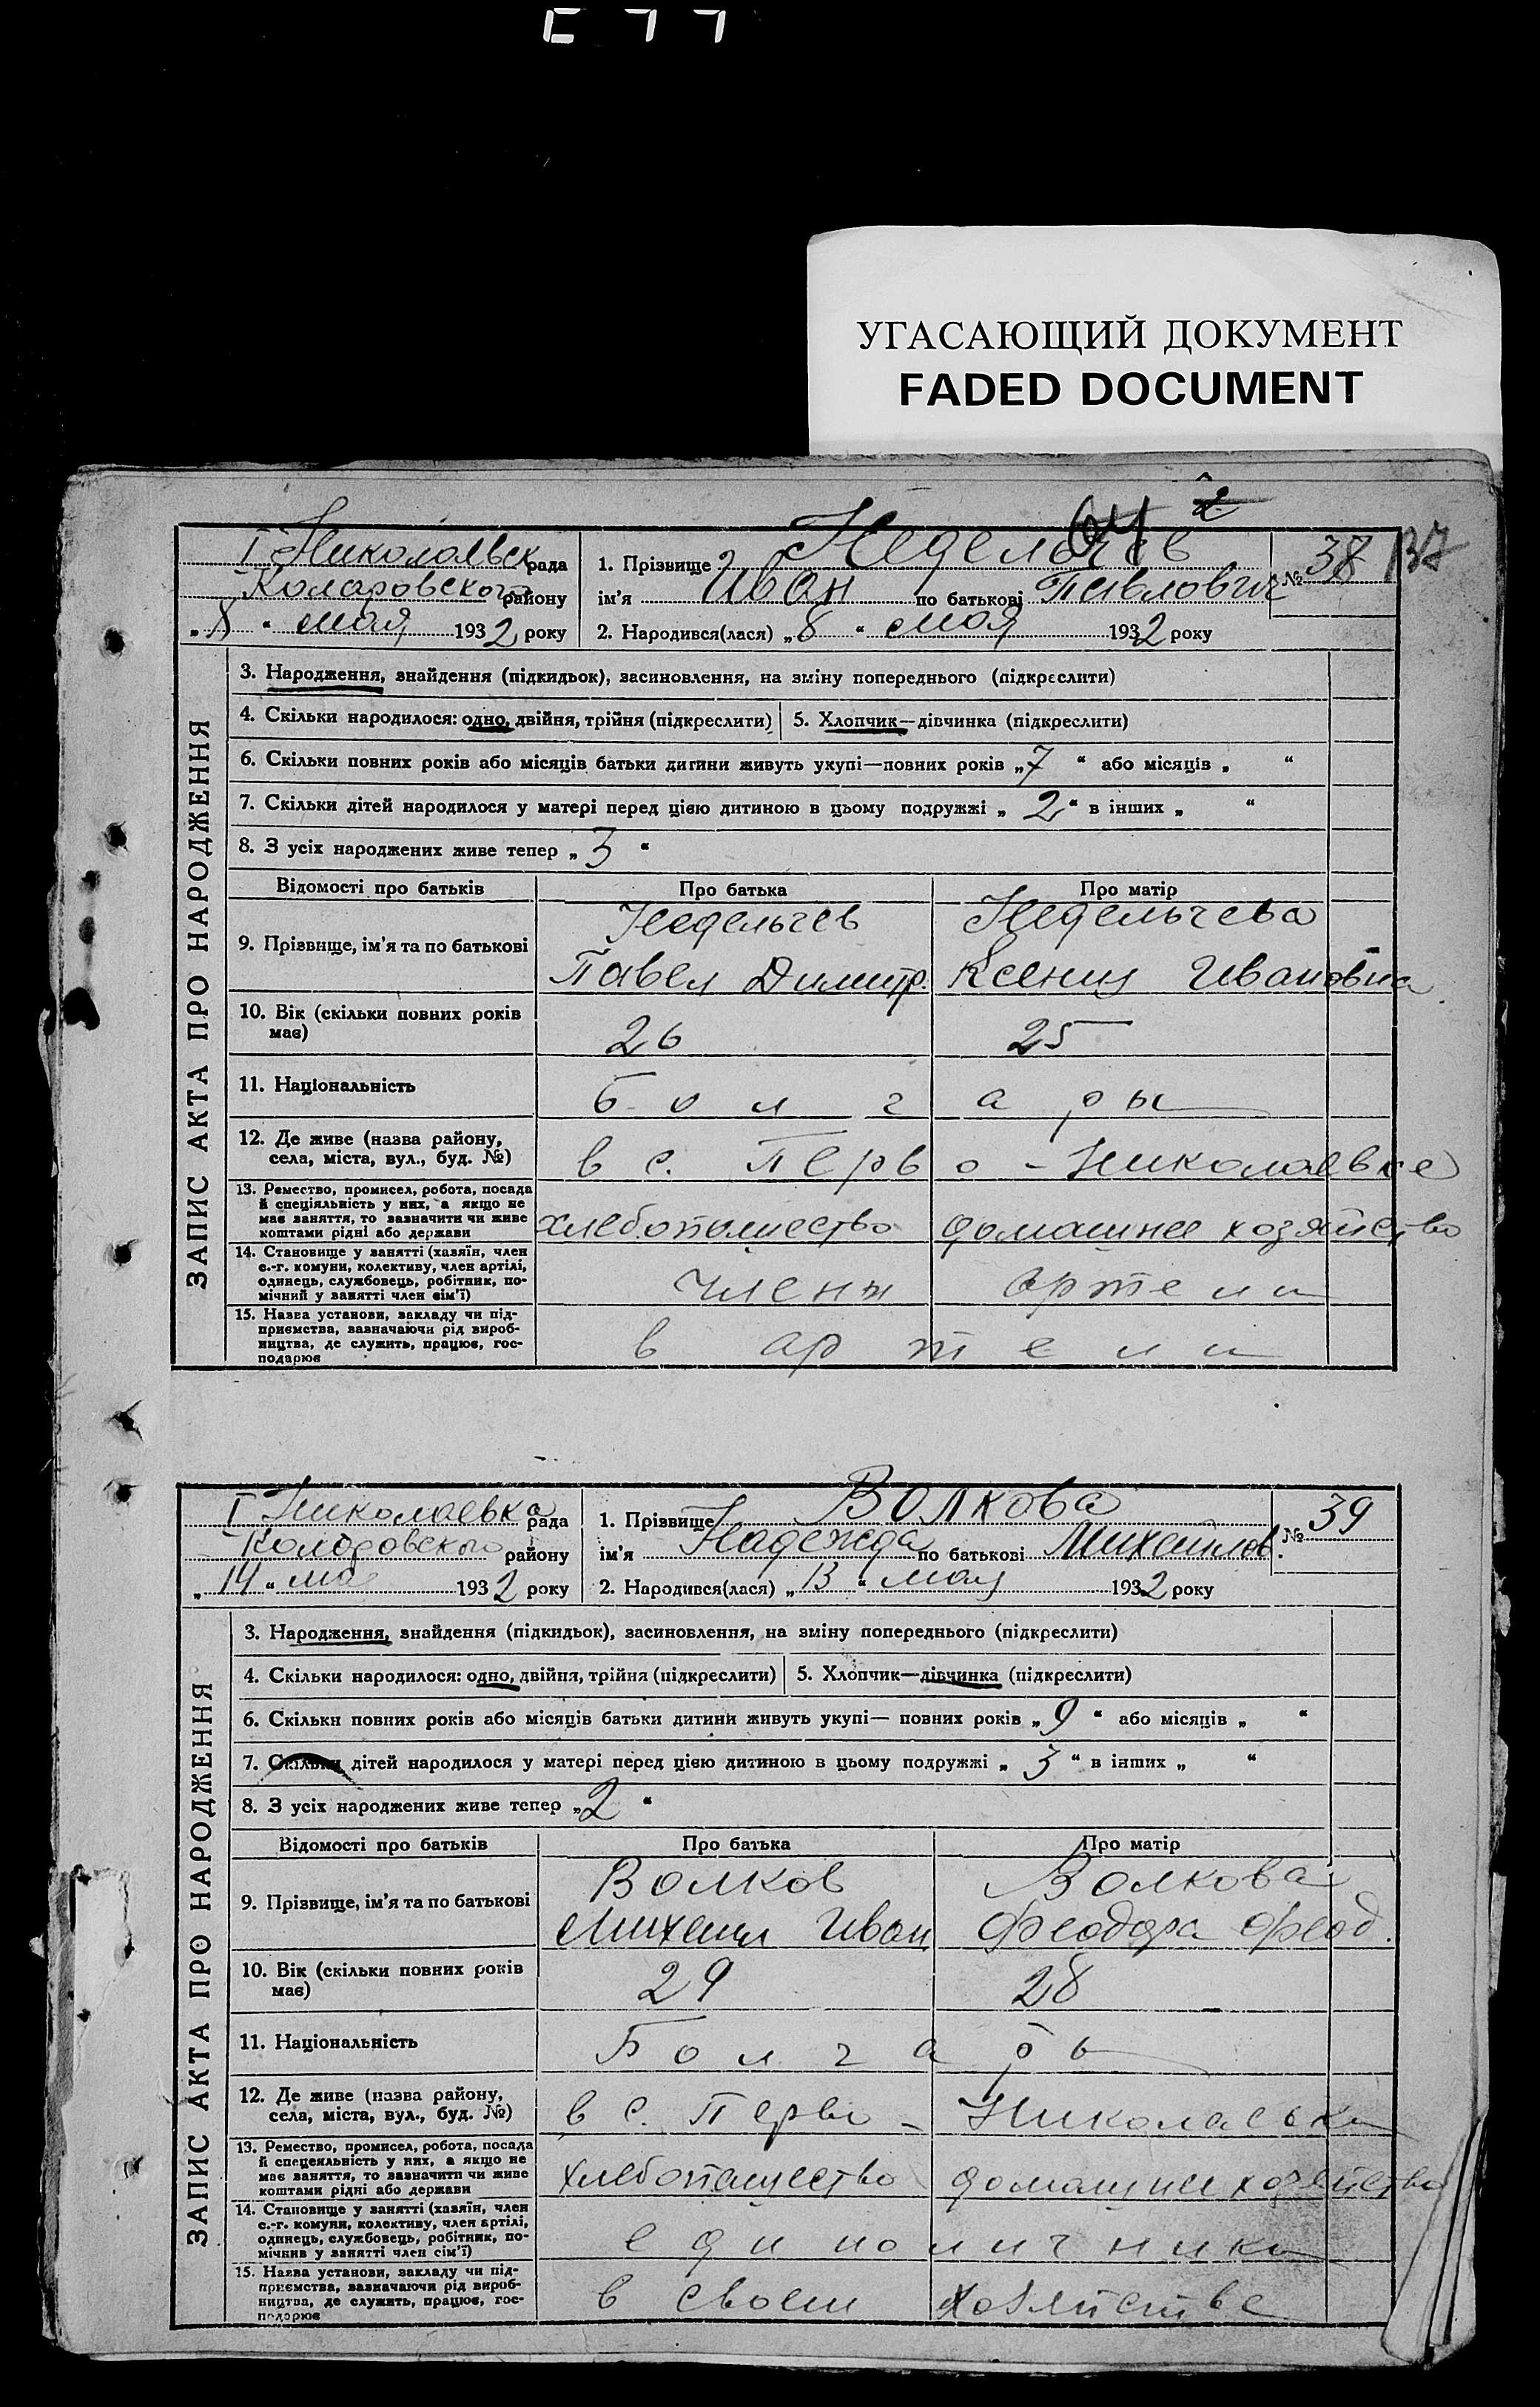 E 7 7
УГАСАЮЩИЙ ДОКУМЕНТ
FADED DOCUMENT
64 2
I Николаевск рада
Коларовского району
„8“ мая 1932 року
1. Прізвище Недельчев
ім'я Иван по батькові Павлович
2. Народився(лася) „8“ мая 1932 року
№ 38
137
ЗАПИС АКТА ПРО НАРОДЖЕННЯ
3. Народження, знайдення (підкидьок), засиновлення, на зміну попереднього (підкреслити)
4. Скільки народилося: одно, двійня, трійня (підкреслити) 5. Хлопчик—дівчинка (підкреслити)
6. Скільки повних років або місяців батьки дитини живуть укупі—повних років „7“ або місяців „ “
7. Скільки дітей народилося у матері перед цією дитиною в цьому подружжі „2“ в інших „ “
8. З усіх народжених живе тепер „3“
Відомості про батьків Про батька Про матір
Недельчев Недельчева
9. Прізвище, ім'я та по батькові
Павел Димитр. Ксения Ивановна
10. Вік (скільки повних років має) 26 25
11. Національність болгары
12. Де живе (назва району, села, міста, вул., буд. №) в с. Перво-Николаевке
13. Ремество, промисел, робота, посада й спеціяльність у них, а якщо не має заняття, то зазначити чи живе коштами рідні або держави хлебопашество домашнее хозяйство
14. Становище у занятті (хазяїн, член с.-г. комуни, колективу, член артілі, одинець, службовець, робітник, помічний у занятті член сім'ї) члены артели
15. Назва установи, закладу чи підприємства, зазначаючи рід виробництва, де служить, працює, господарює в артели
I Николаевка рада
Коларовского району
„14“ мая 1932 року
1. Прізвище Волкова
ім'я Надежда по батькові Михайлов.
2. Народився(лася) „13“ мая 1932 року
№ 39
ЗАПИС АКТА ПРО НАРОДЖЕННЯ
3. Народження, знайдення (підкидьок), засиновлення, на зміну попереднього (підкреслити)
4. Скільки народилося: одно, двійня, трійня (підкреслити) 5. Хлопчик—дівчинка (підкреслити)
6. Скільки повних років або місяців батьки дитини живуть укупі— повних років „9“ або місяців „ “
7. Скільки дітей народилося у матері перед цією дитиною в цьому подружжі „3“ в інших „ “
8. З усіх народжених живе тепер „2“
Відомості про батьків Про батька Про матір
Волков Волкова
9. Прізвище, ім'я та по батькові
Михаил Иван Феодора Феод.
10. Вік (скільки повних років має) 29 28
11. Національність Болгары
12. Де живе (назва району, села, міста, вул., буд. №) в с. Перво-Николаевка
13. Ремество, промисел, робота, посада й спецеяльність у них, а якщо не має заняття, то зазначити чи живе коштами рідні або держави хлебопашество домашнее хозяйство
14. Становище у занятті (хазяїн, член с.-г. комуни, колективу, член артілі, одинець, службовець, робітник, помічник у занятті член сім'ї) единоличники
15. Назва установи, закладу чи підприємства, зазначаючи рід виробництва, де служить, працює, господарює в своем хозяйстве